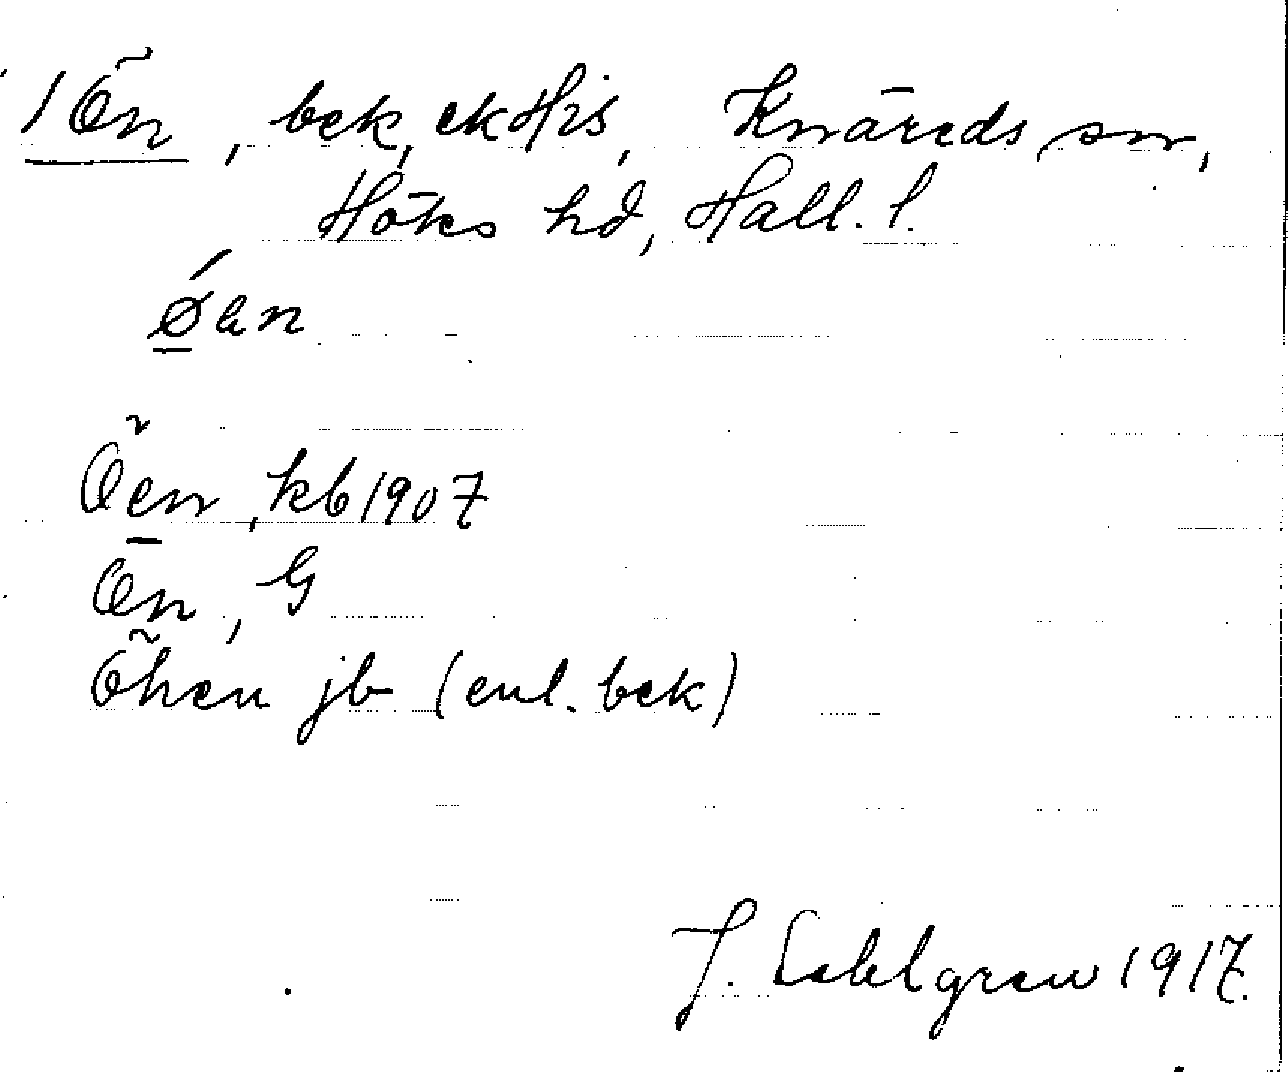 / Ön, bek, ek His, Knäreds sn,
Höks hd, Hall. l.
Øan
Öen, kb 1907
Ön, G
Öhen jb (enl. bek)
J. Sahlgren 1917.